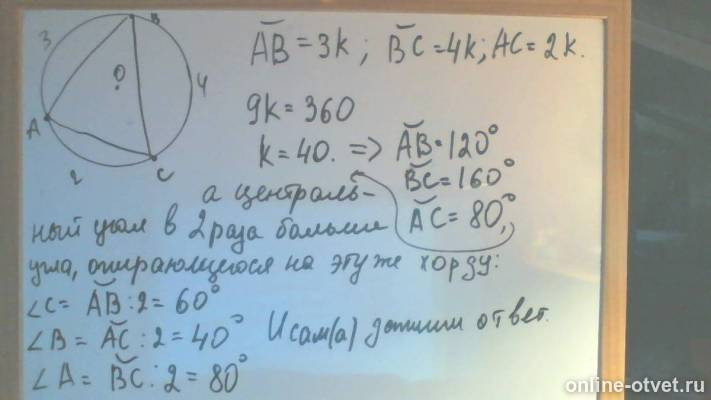 B
3
O
4
A
2
C
ᴗAB = 3k ; ᴗBC = 4k; AC = 2k.
9k = 360
k = 40. => ᴗAB = 120°
ᴗBC = 160°
ᴗAC = 80°,
а централь-
ный угол в 2 раза больше
угла, опирающегося на эту же хорду:
∠C = ᴗAB : 2 = 60°
∠B = ᴗAC : 2 = 40°
∠A = ᴗBC : 2 = 80°
И сам(а) допиши ответ.
online-otvet.ru